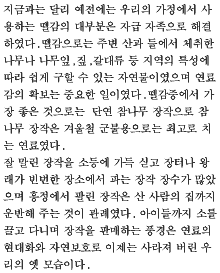 지금과는 달리 예전에는 우리의 가정에서 사
용하는 땔감의 대부분은 자급 자족으로 해결
하였다.땔감으로는 주변 산과 들에서 채취한
나무나 나무잎,짚,갈대류 등 지역의 특성에
따라 쉽게 구할 수 있는 자연물이였으며 연료
감의 확보는 중요한 일이였다.땔감중에서 가
장 좋은 것으로는 단연 참나무 장작으로 참
나무 장작은 겨울철 군불용으로는 최고로 치
는 연료였다.
잘 말린 장작을 소등에 가득 싣고 장터나 왕
래가 빈번한 장소에서 파는 장작 장수가 많았
으며 흥정에서 팔린 장작은 산 사람의 집까지
운반해 주는 것이 판례였다.아이들까지 소를
끌고 다니며 장작을 판매하는 풍경은 연료의
현대화와 자연보호로 이제는 사라져 버린 우
리의 옛 모습이다.